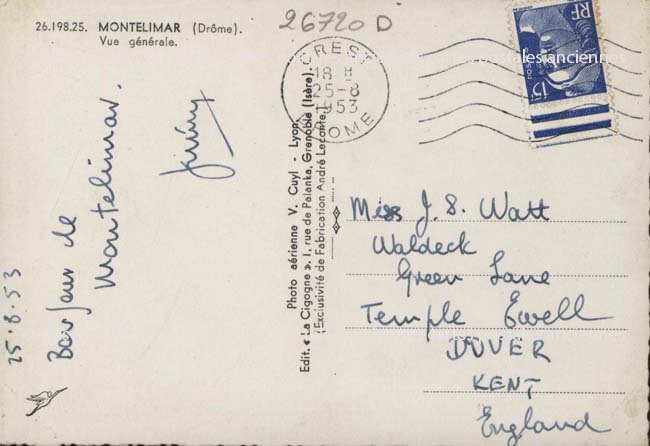 26720 D
26.198.25. MONTELIMAR (Drôme).
Vue générale.
CREST
18 H
25-8
1953
DROME
RF
15F
POSTES
Photo aérienne V. Cuyl - Lyon.
Edit. « La Cigogne ». 1, rue de Palanka, Grenoble (Isère).
(Exclusivité de Fabrication André Leconte)
25.8.53
Bonjour de
Montelimar.
Miss J. S. Watt
Waldeck
Green Lane
Temple Ewell
DOVER
KENT
England